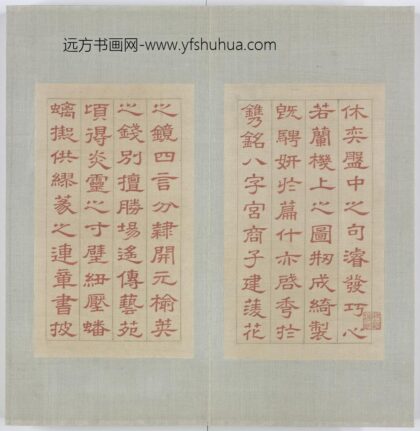 远方书画网-www.yfshuhua.com
休奕盤中之句濬發巧心
若蘭機上之圖扨成綺製
旣騁妍於篇什亦啓秀於
鐫銘八字宮商子建蔆花
之鏡四言分隸開元榆莢
之錢別擅勝場遙傳藝苑
頃得炎靈之寸璧紐壓蟠
螭摹供繆篆之連章書披